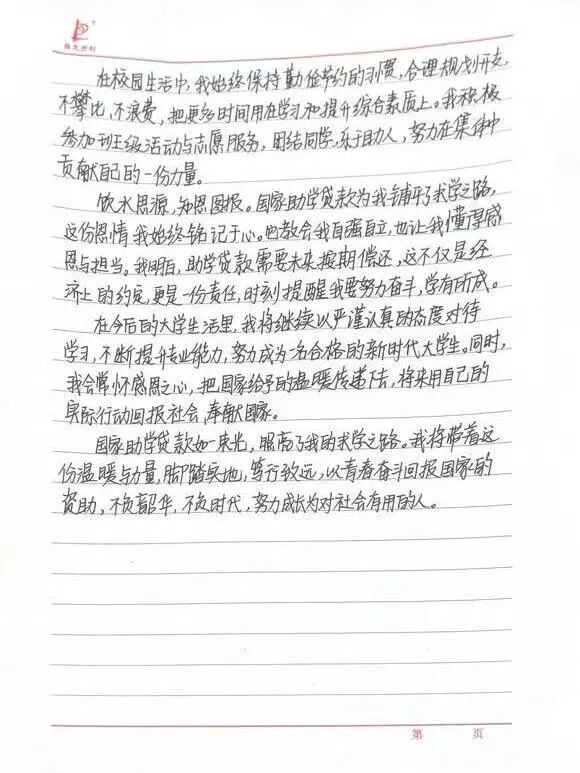 在校园生活中，我始终保持勤俭节约的习惯，合理规划开支，
不攀比，不浪费，把更多时间用在学习和提升综合素质上。我积极
参加班级活动与志愿服务，团结同学，乐于助人，努力在集体中
贡献自己的一份力量。
饮水思源，知恩图报。国家助学贷款为我铺平了求学之路，
这份恩情我始终铭记于心。也教会我自强自立，也让我懂得感
恩与担当。我明白，助学贷款需要未来按期偿还，这不仅是经
济上的约定，更是一份责任，时刻提醒我要努力奋斗，学有所成。
在今后的大学生活里，我将继续以严谨认真的态度对待
学习，不断提升专业能力，努力成为一名合格的新时代大学生。同时，
我会常怀感恩之心，把国家给予的温暖传递下去，将来用自己的
实际行动回报社会，奉献国家。
国家助学贷款如一束光，照亮了我的求学之路。我将带着这
份温暖与力量，脚踏实地，笃行致远，以青春奋斗回报国家的
资助，不负韶华，不负时代，努力成长为对社会有用的人。
第 页